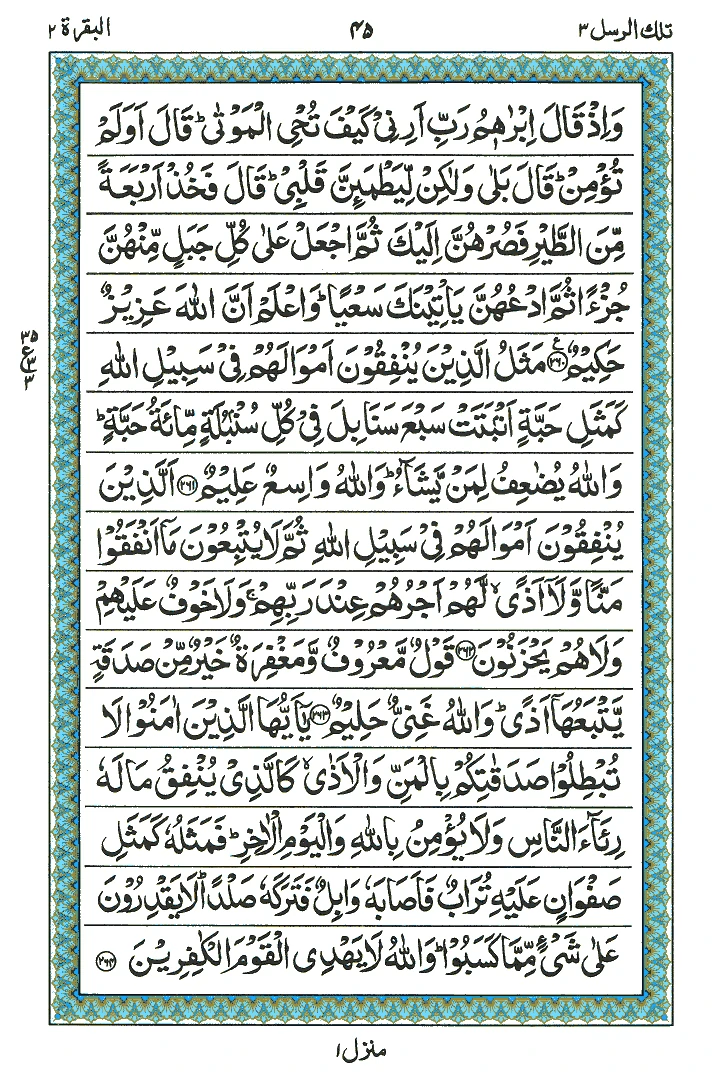 تلك الرسل ٣
٤٥
البقرة ٢
وَاِذْ قَالَ اِبْرٰهٖمُ رَبِّ اَرِنِىْ كَيْفَ تُحْىِ الْمَوْتٰىؕ قَالَ اَوَلَمْ
تُؤْمِنْؕ قَالَ بَلٰى وَلٰكِنْ لِّيَطْمَئِنَّ قَلْبِىْؕ قَالَ فَخُذْ اَرْبَعَةً
مِّنَ الطَّيْرِ فَصُرْهُنَّ اِلَيْكَ ثُمَّ اجْعَلْ عَلٰى كُلِّ جَبَلٍ مِّنْهُنَّ
جُزْءًا ثُمَّ ادْعُهُنَّ يَاْتِيْنَكَ سَعْيًاؕ وَاعْلَمْ اَنَّ اللّٰهَ عَزِيْزٌ
حَكِيْمٌ ۧ﴿۲۶۰﴾ مَثَلُ الَّذِيْنَ يُنْفِقُوْنَ اَمْوَالَهُمْ فِىْ سَبِيْلِ اللّٰهِ
كَمَثَلِ حَبَّةٍ اَنْۢبَتَتْ سَبْعَ سَنَابِلَ فِىْ كُلِّ سُنْۢبُلَةٍ مِّائَةُ حَبَّةٍؕ
وَاللّٰهُ يُضٰعِفُ لِمَنْ يَّشَآءُؕ وَاللّٰهُ وَاسِعٌ عَلِيْمٌ ﴿۲۶۱﴾ اَلَّذِيْنَ
يُنْفِقُوْنَ اَمْوَالَهُمْ فِىْ سَبِيْلِ اللّٰهِ ثُمَّ لَا يُتْبِعُوْنَ مَاۤ اَنْفَقُوْا
مَنًّا وَّلَاۤ اَذًىۙ لَّهُمْ اَجْرُهُمْ عِنْدَ رَبِّهِمْۚ وَلَا خَوْفٌ عَلَيْهِمْ
وَلَا هُمْ يَحْزَنُوْنَ ﴿۲۶۲﴾ قَوْلٌ مَّعْرُوْفٌ وَّمَغْفِرَةٌ خَيْرٌ مِّنْ صَدَقَةٍ
يَّتْبَعُهَاۤ اَذًىؕ وَاللّٰهُ غَنِىٌّ حَلِيْمٌ ﴿۲۶۳﴾ يٰۤاَيُّهَا الَّذِيْنَ اٰمَنُوْا لَا
تُبْطِلُوْا صَدَقٰتِكُمْ بِالْمَنِّ وَالْاَذٰىۙ كَالَّذِىْ يُنْفِقُ مَالَهٗ
رِئَآءَ النَّاسِ وَلَا يُؤْمِنُ بِاللّٰهِ وَالْيَوْمِ الْاٰخِرِؕ فَمَثَلُهٗ كَمَثَلِ
صَفْوَانٍ عَلَيْهِ تُرَابٌ فَاَصَابَهٗ وَابِلٌ فَتَرَكَهٗ صَلْدًاؕ لَا يَقْدِرُوْنَ
عَلٰى شَىْءٍ مِّمَّا كَسَبُوْاؕ وَاللّٰهُ لَا يَهْدِى الْقَوْمَ الْكٰفِرِيْنَ ﴿۲۶۴﴾
۳۵
ع
۳
۳
منزل ۱